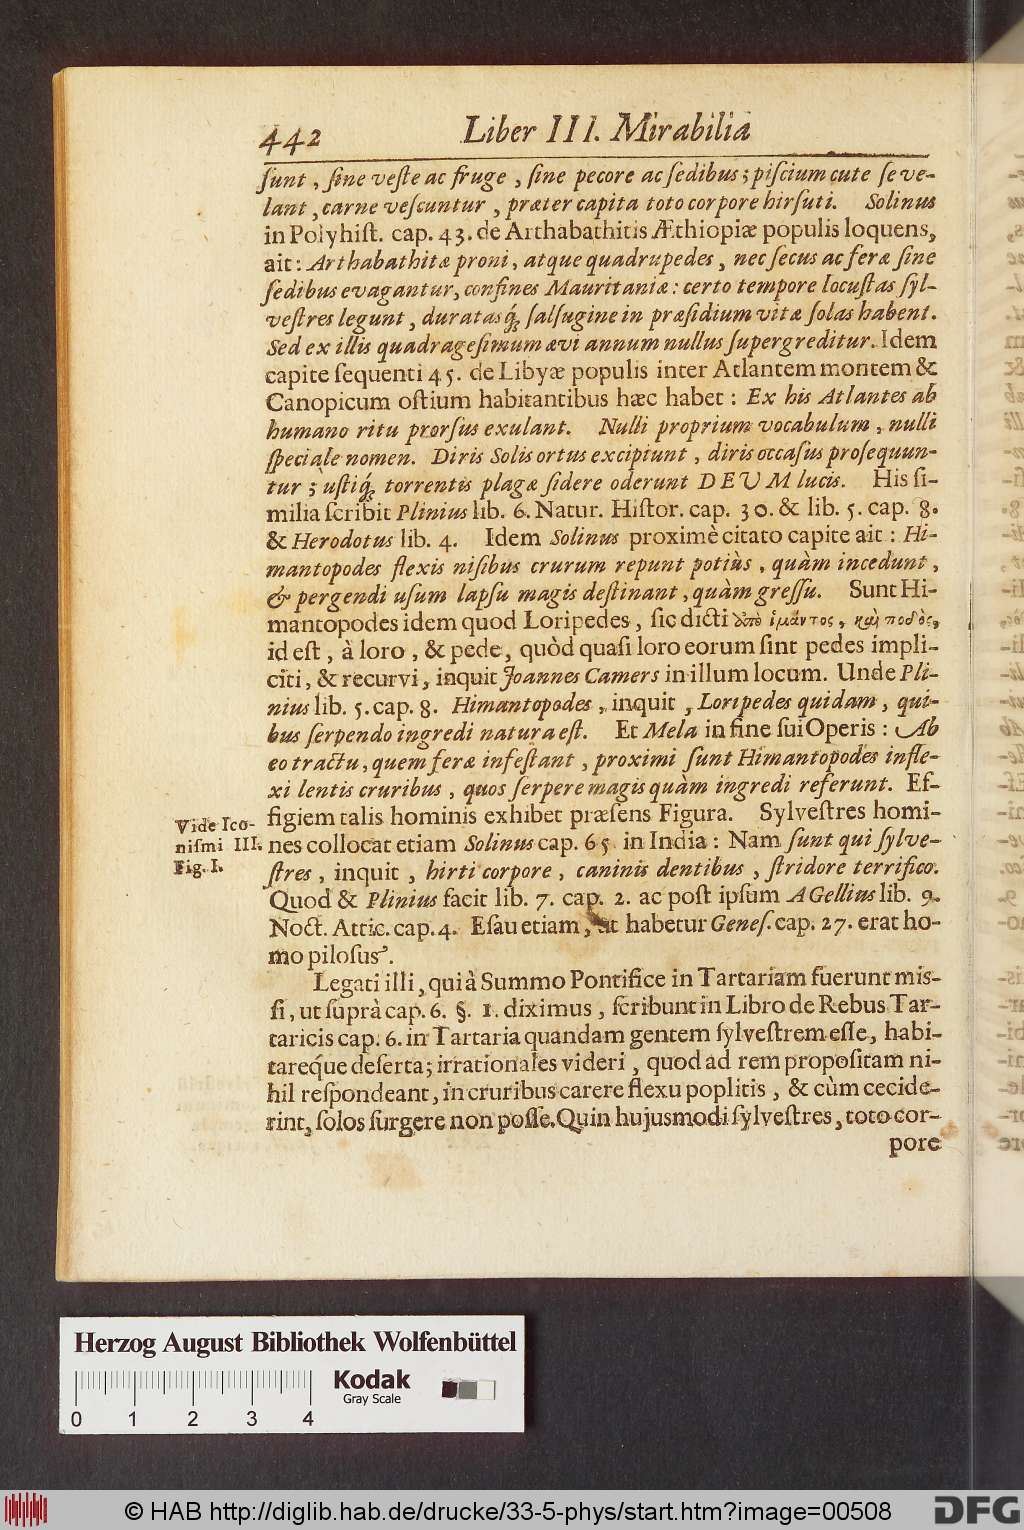 442 Liber III. Mirabilia
ſunt, ſine veſte ac fruge, ſine pecore ac ſedibus; piſcium cute ſe ve-
lant, carne veſcuntur, præter capita toto corpore hirſuti. Solinus
in Polyhiſt. cap. 43. de Arthabathitis Æthiopiæ populis loquens,
ait: Arthabathitæ proni, atque quadrupedes, nec ſecus ac feræ ſine
ſedibus evagantur, confines Mauritaniæ: certo tempore locuſtas ſyl-
veſtres legunt, duratasq́; ſalſugine in præſidium vitæ ſolas habent.
Sed ex illis quadrageſimum ævi annum nullus ſupergreditur. Idem
capite ſequenti 45. de Libyæ populis inter Atlantem montem &
Canopicum oſtium habitantibus hæc habet: Ex his Atlantes ab
humano ritu prorſus exulant. Nulli proprium vocabulum, nulli
ſpeciale nomen. Diris Solis ortus excipiunt, diris occaſus proſequun-
tur; uſtiq́; torrentis plagæ ſidere oderunt DEUM lucis. His ſi-
milia ſcribit Plinius lib. 6. Natur. Hiſtor. cap. 30. & lib. 5. cap. 8.
& Herodotus lib. 4. Idem Solinus proximè citato capite ait: Hi-
mantopodes flexis niſibus crurum repunt potiùs, quàm incedunt,
& pergendi uſum lapſu magis deſtinant, quàm greſſu. Sunt Hi-
mantopodes idem quod Loripedes, ſic dicti ἀπὸ ἱμάντος, καὶ ποδὸς,
id eſt, à loro, & pede, quòd quaſi loro eorum ſint pedes impli-
citi, & recurvi, inquit Joannes Camers in illum locum. Unde Pli-
nius lib. 5. cap. 8. Himantopodes, inquit, Loripedes quidam, qui-
bus ſerpendo ingredi natura eſt. Et Mela in fine ſui Operis: Ab
eo tractu, quem feræ infeſtant, proximi ſunt Himantopodes infle-
xi lentis cruribus, quos ſerpere magis quàm ingredi referunt. Ef-
figiem talis hominis exhibet præſens Figura. Sylveſtres homi-
Vide Ico-
niſmi III.
Fig. I.
nes collocat etiam Solinus cap. 65. in India: Nam ſunt qui ſylve-
ſtres, inquit, hirti corpore, caninis dentibus, ſtridore terrifico.
Quod & Plinius facit lib. 7. cap. 2. ac poſt ipſum A Gellius lib. 9.
Noct. Attic. cap. 4. Eſau etiam, ut habetur Geneſ. cap. 27. erat ho-
mo piloſus.
Legati illi, qui à Summo Pontifice in Tartariam fuerunt miſ-
ſi, ut ſuprà cap. 6. §. 1. diximus, ſcribunt in Libro de Rebus Tar-
taricis cap. 6. in Tartaria quandam gentem ſylveſtrem eſſe, habi-
tareq́ue deſerta; irrationales videri, quod ad rem propoſitam ni-
hil reſpondeant, in cruribus carere flexu poplitis, & cùm cecide-
rint, ſolos ſurgere non poſſe. Quin hujusmodi ſylveſtres, toto cor-
pore
Herzog August Bibliothek Wolfenbüttel
Kodak
Gray Scale
0 1 2 3 4
© HAB http://diglib.hab.de/drucke/33-5-phys/start.htm?image=00508
DFG